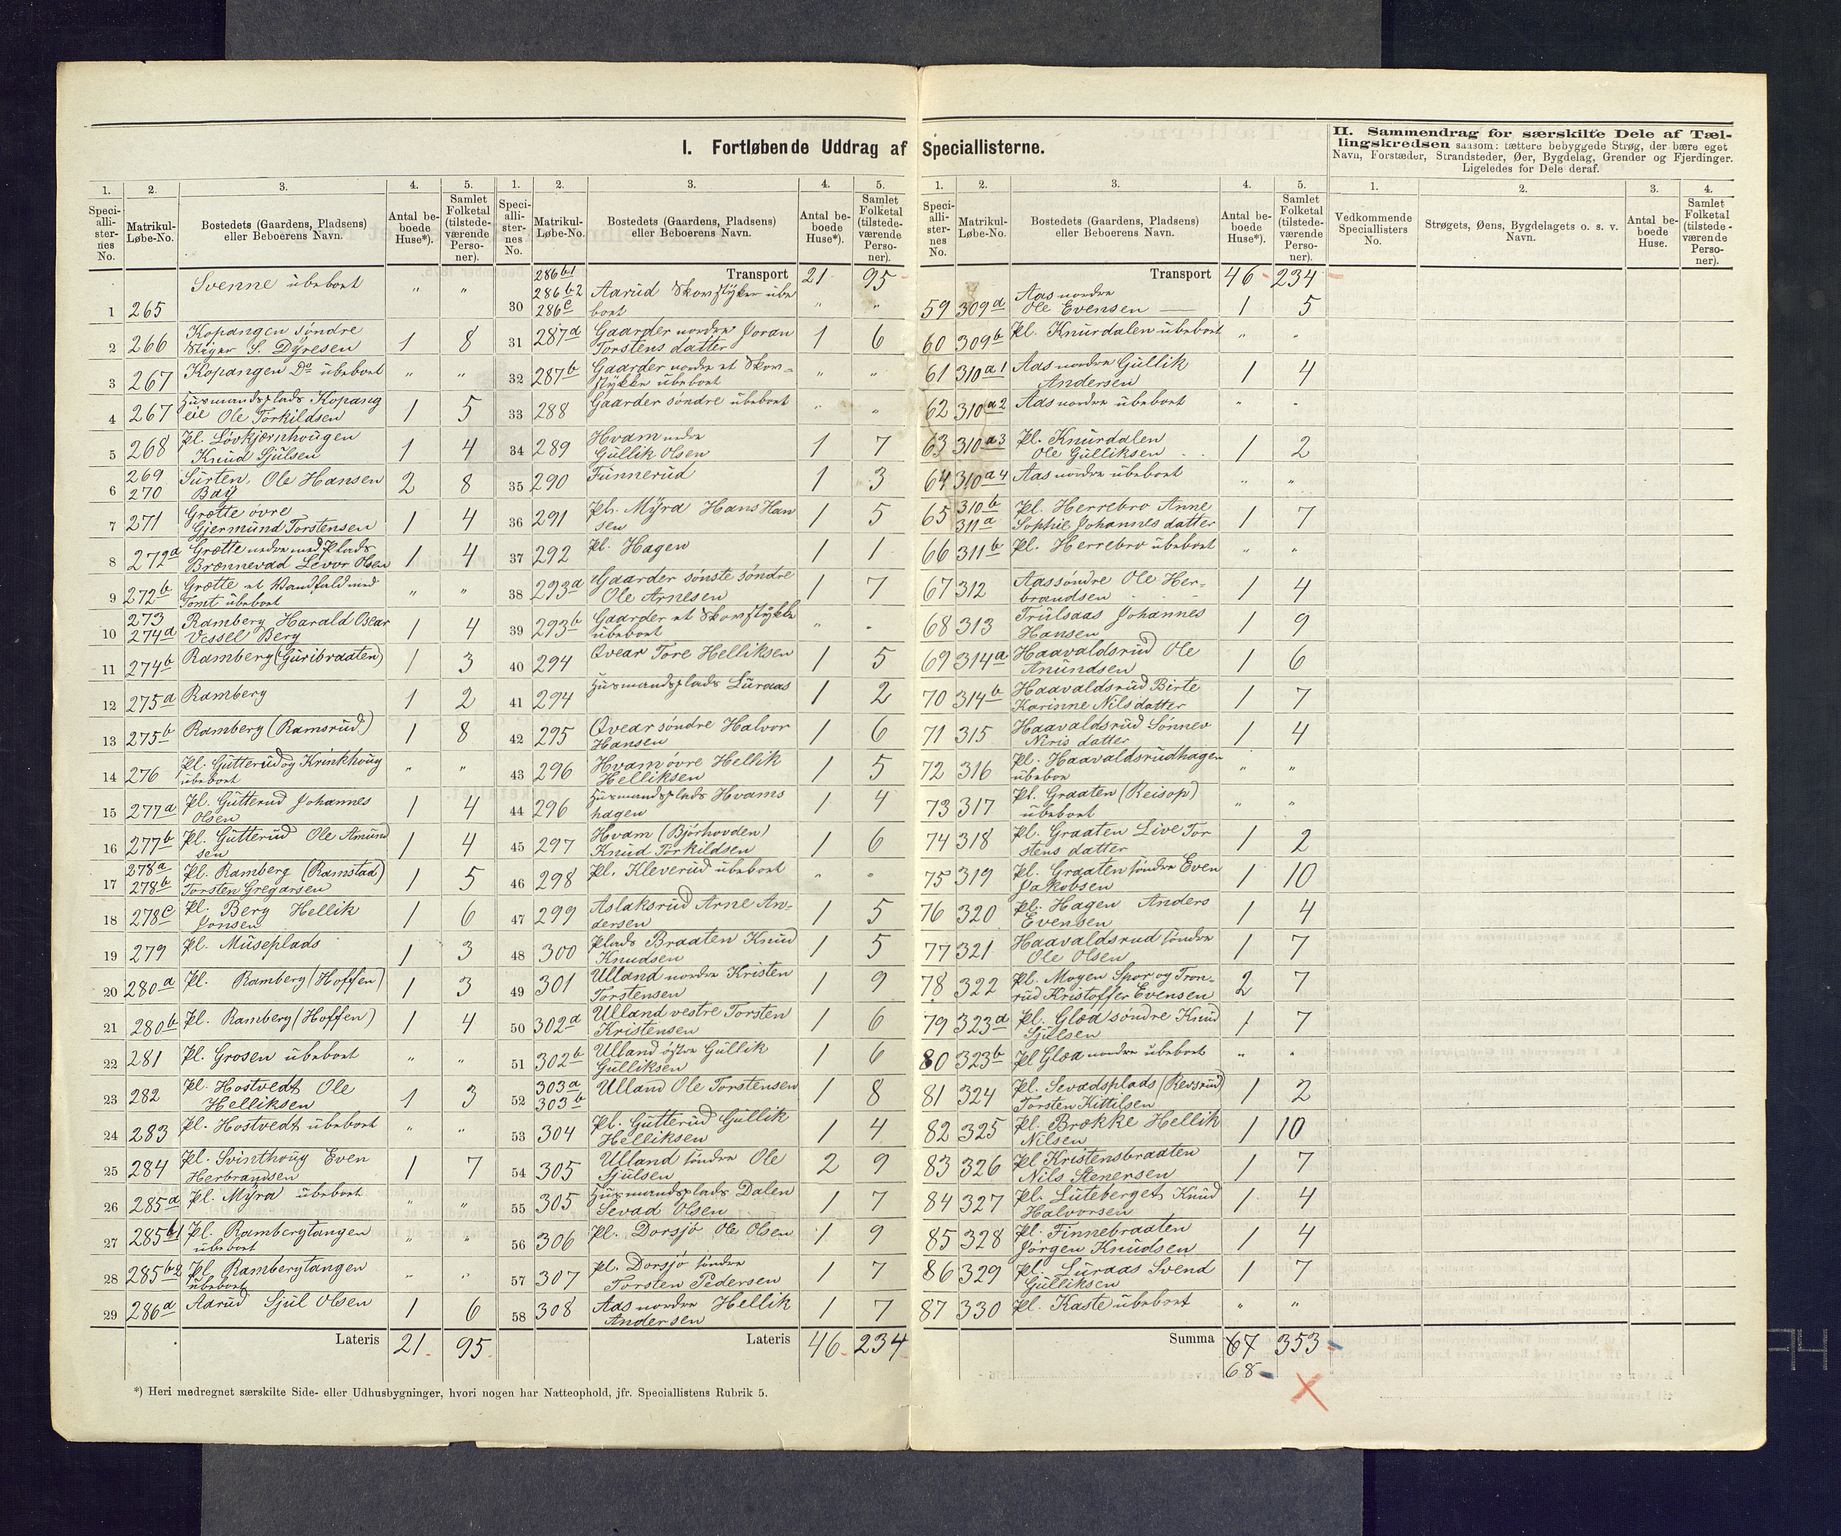 I. Fortløbende Uddrag af Speciallisterne.
II. Sammendrag for særskilte Dele af Tæl-
lingskredsen saasom: tættere bebyggede Strøg, der bære eget
Navn, Forstæder, Strandsteder, Øer, Bygdelag, Grender og Fjerdinger.
Ligeledes for Dele deraf.
1. 2. 3. 4. 5. 1. 2. 3. 4. 5. 1. 2. 3. 4. 5. 1. 2. 3. 4.
Speciallisternes No. Matrikul-Løbe-No. Bostedets (Gaardens, Pladsens) eller Beboerens Navn. Antal beboede Huse*). Samlet Folketal (tilstedeværende Personer).
1 265 Svenne ubeboet " "
2 266 Kopangen søndre
Steger S. Dyresen 1 8
3 267 Kopangen Do ubeboet " "
4 267 Husmandsplads Kopang
eie Ole Torkildsen 1 5
5 268 Pl. Løvkjernhougen
Knud Sjulsen 1 4
6 269 270 Surten, Ole Hansen
Bay 2 8
7 271 Grøtte øvre
Gjermund Torstensen 1 4
8 272a Grøtte nedre med Plads
Brønnevad Levor Olsen 1 4
9 272b Grøtte et Vandfald med
Tomt ubeboet " "
10 273 274a Ramberg Harald Oscar
Vessel Berg 1 4
11 274b Ramberg (Guribraaten) 1 3
12 275a Ramberg 1 2
13 275b Ramberg (Ramsrud) 1 8
14 276 Pl. Gutterud og Krinkhoug
ubeboet " "
15 277a Pl. Gutterud Johannes
Olsen 1 4
16 277b Pl. Gutterud Ole Amund
sen 1 4
17 278a 278b Pl. Ramberg (Ramstad)
Torsten Gregarsen 1 5
18 278c Pl. Berg Hellik
Jonsen 1 6
19 279 Pl. Museplads 1 3
20 280a Pl. Ramberg (Hoffen) 1 3
21 280b Pl. Ramberg (Hoffen) 1 4
22 281 Pl. Grosen ubeboet " "
23 282 Pl. Hostvedt Ole
Helliksen 1 3
24 283 Pl. Hostvedt ubeboet " "
25 284 Pl. Svinthoug Even
Herbrandsen 1 7
26 285a Pl. Myra ubeboet " "
27 285b1 Pl. Rambergtangen
ubeboet " "
28 285b2 Pl Rambergtangen
ubeboet " "
29 286a Aarud Sjul Olsen 1 6
Lateris 21 95
Transport 21 95
30 286b1 286b2 286c Aarud Skovstyker ube
boet " "
31 287a Gaarder nordre Joran
Torstens datter 1 6
32 287b Gaarder nordre et Skov-
stykke ubeboet " "
33 288 Gaarder søndre ubeboet " "
34 289 Hvam nedre
Gullik Olsen 1 7
35 290 Funnerud 1 3
36 291 Pl. Myra Hans Han
sen 1 5
37 292 Pl. Hagen 1 1
38 293a Gaarder sønste søndre
Ole Arnesen 1 7
39 293b Gaarder et Skovstykke
ubeboet " "
40 294 Qvear Tore Helliksen 1 5
41 294 Husmandsplads Luraas 1 2
42 295 Qvear søndre Halvor
Hansen 1 6
43 296 Hvam øvre Hellik
Helliksen 1 5
44 296 Husmandsplads Hvams
hagen 1 4
45 297 Hvam (Bjørhovden)
Knud Torkildsen 1 6
46 298 Pl. Kleverud ubeboet " "
47 299 Aslaksrud Arne An-
dersen 1 5
48 300 Plads Braaten Knud
Knudsen 1 5
49 301 Ulland nordre Kristen
Torstensen 1 9
50 302a Ulland vestre Torsten
Kristensen 1 6
51 302b Ulland østre Gullik
Gulliksen 1 6
52 303a 303b Ulland Ole Torstensen 1 8
53 304 Pl. Gutterud Gullik
Helliksen 1 4
54 305 Ulland søndre Ole
Sjulsen 2 9
55 305 Husmandsplads Dalen
Sevad Olsen 1 7
56 306 Pl. Dorsjø Ole Olsen 1 9
57 307 Pl. Dorsjø søndre
Torsten Pedersen 1 7
58 308 Aas nordre Hellik
Andersen 1 7
Lateris 46 234
Transport 46 234
59 309a Aas nordre
Ole Evensen 1 5
60 309b Pl. Knurdalen ubeboet " "
61 310a1 Aas nordre Gullik
Andersen 1 4
62 310a2 Aas nordre ubeboet " "
63 310a3 Pl. Knurdalen
Ole Gulliksen 1 2
64 310a4 Aas nordre ubeboet " "
65 310b 311a Pl. Herrebro Anne
Sophie Johannes datter 1 7
66 311b Pl. Herrebro ubeboet " "
67 312 Aas søndre Ole Her-
brandsen 1 4
68 313 Trulsaas Johannes
Hansen 1 9
69 314a Haavaldsrud Ole
Amundsen 1 6
70 314b Haavaldsrud Birte
Karinne Nils datter 1 7
71 315 Haavaldsrud Sønnev
Niris datter 1 4
72 316 Pl. Haavaldsrudhagen
ubeboe " "
73 317 Pl. Graaten (Reisop)
ubeboet " "
74 318 Pl. Graaten Live Tor
stens datter 1 2
75 319 Pl. Graaten søndre Even
Jakobsen 1 10
76 320 Pl. Hagen Anders
Evensen 1 4
77 321 Haavaldsrud søndre
Ole Olsen 1 7
78 322 Pl. Moyen Spor og Tron-
rud Kristoffer Evensen 2 7
79 323a Pl. Glæd søndre Knud
Sjulsen 1 7
80 323b Pl Glæd nordre ubeboet " "
81 324 Pl. Sevadsplads (Revsrud)
Torsten Kittilsen 1 2
82 325 Pl. Brokke Hellik
Nilsen 1 10
83 326 Pl Kristensbraaten
Nils Stenersen 1 7
84 327 Pl. Luteberget Knud
Halvorsen 1 4
85 328 Pl. Finnebraaten
Jørgen Knudsen 1 4
86 329 Pl. Luraas Svend
Gulliksen 1 7
87 330 Pl. Kaste ubeboet " "
Summa 67 353
68
Vedkommende Speciallisters No. Strøgets, Øens, Bygdelagets o. s. v. Navn. Antal beboede Huse. Samlet Folketal (tilstedeværende Personer).
*) Heri medregnet særskilte Side- eller Udhusbygninger, hvori nogen har Natteophold, jfr. Speciallistens Rubrik 5.